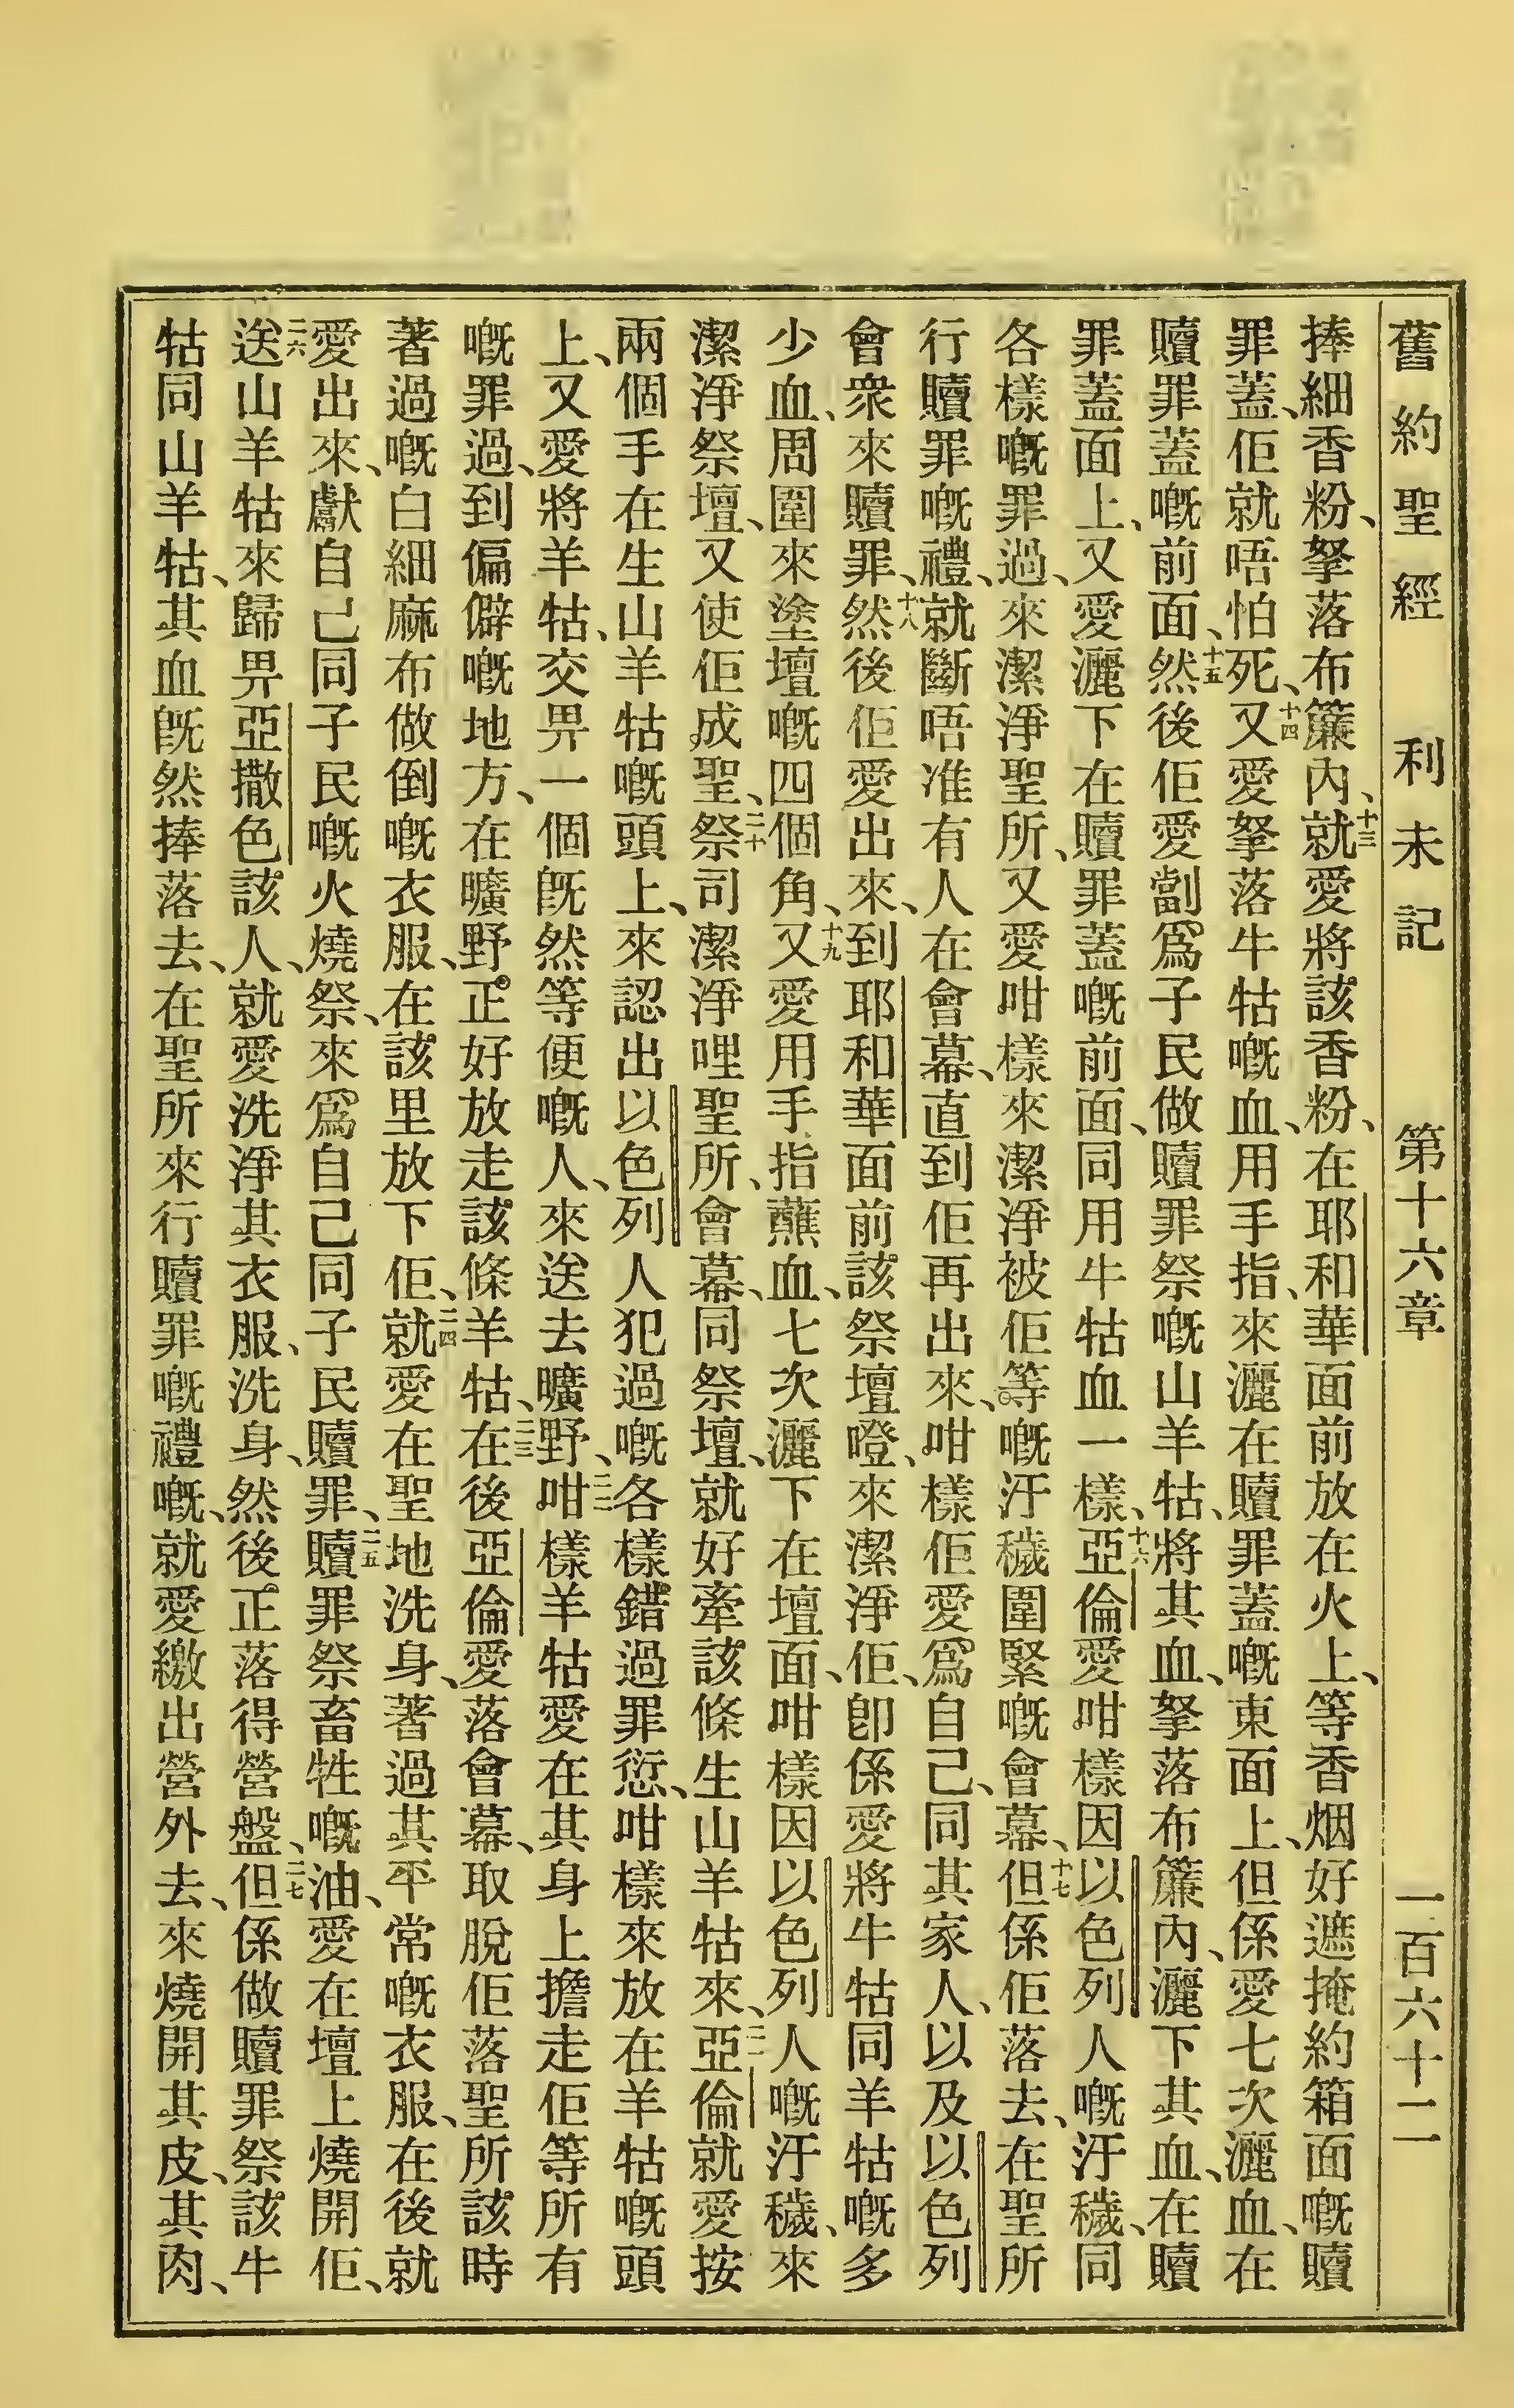 舊約聖經 利未記 第十六章 一百六十二
捧細香粉、拏落布簾內、十三就愛將該香粉、在耶和華面前放在火上、等香烟好遮掩約箱面嘅贖
罪蓋、佢就唔怕死、十四又愛拏落牛牯嘅血、用手指、來灑在贖罪蓋嘅東面上、但係愛七次灑血、在
贖罪蓋嘅前面、十五然後佢愛劏爲子民做贖罪祭嘅山羊牯、將其血、拏落布簾內、灑下其血、在贖
罪蓋面上、又愛灑下在贖罪蓋嘅前面、同用牛牯血一樣、十六亞倫愛咁樣因以色列人嘅汙穢、同
各樣嘅罪過、來潔淨聖所、又愛咁樣來潔淨被佢等嘅汙穢圍緊嘅會幕、十七但係佢落去、在聖所
行贖罪嘅禮、就斷唔准有人在會幕、直到佢再出來、咁樣佢愛爲自己、同其家人、以及以色列
會衆來贖罪、十八然後佢愛出來、到耶和華面前該祭壇嶝、來潔淨佢、卽係愛將牛牯同羊牯嘅多
少血、周圍來塗壇嘅四個角、十九又愛用手指蘸血、七次灑下在壇面、咁樣因以色列人嘅汙穢、來
潔淨祭壇、又使佢成聖、二十祭司潔淨哩聖所、會幕、同祭壇、就好牽該條生山羊牯來、二一亞倫就愛按
兩個手在生山羊牯嘅頭上、來認出以色列人犯過嘅各樣錯過罪愆、咁樣來放在羊牯嘅頭
上、又愛將羊牯、交畀一個旣然等便嘅人、來送去曠野、二二咁樣羊牯愛在其身上擔走佢等所有
嘅罪過、到偏僻嘅地方、在曠野正好放走該條羊牯、二三在後亞倫愛落會幕、取脫佢落聖所該時
著過嘅白細麻布做倒嘅衣服、在該里放下佢、二四就愛在聖地洗身、著過其平常嘅衣服、在後就
愛出來、獻自己同子民嘅火燒祭、來爲自己同子民贖罪、二五贖罪祭畜牲嘅油、愛在壇上燒開佢、
二六送山羊牯來歸畀亞撒色該人、就愛洗淨其衣服、洗身、然後正落得營盤、二七但係做贖罪祭該牛
牯同山羊牯、其血旣然捧落去、在聖所來行贖罪嘅禮嘅、就愛繳出營外去、來燒開其皮、其肉、